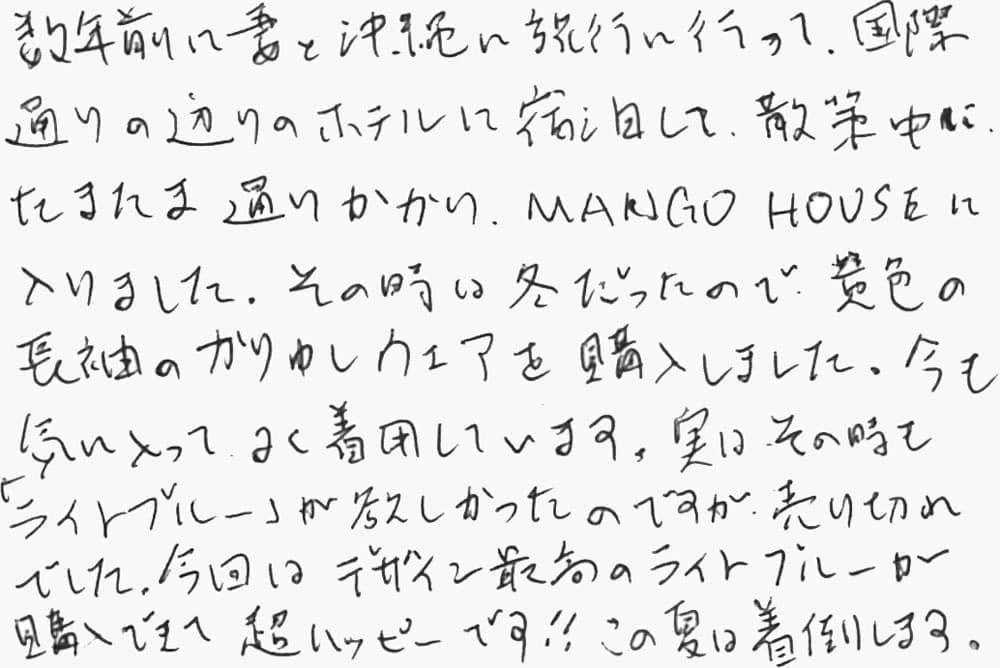 数年前に妻と沖縄に旅行に行って、国際
通りの辺りのホテルに宿泊して、散策中に、
たまたま通りかかり、MANGO HOUSEに
入りました。その時は冬だったので黄色の
長袖のかりゆしウェアを購入しました。今も
気に入ってよく着用しています。実はその時も
「ライトブルー」が欲しかったのですが売り切れ
でした。今回はデザイン最高のライトブルーが
購入できて超ハッピーです!!この夏は着倒します。